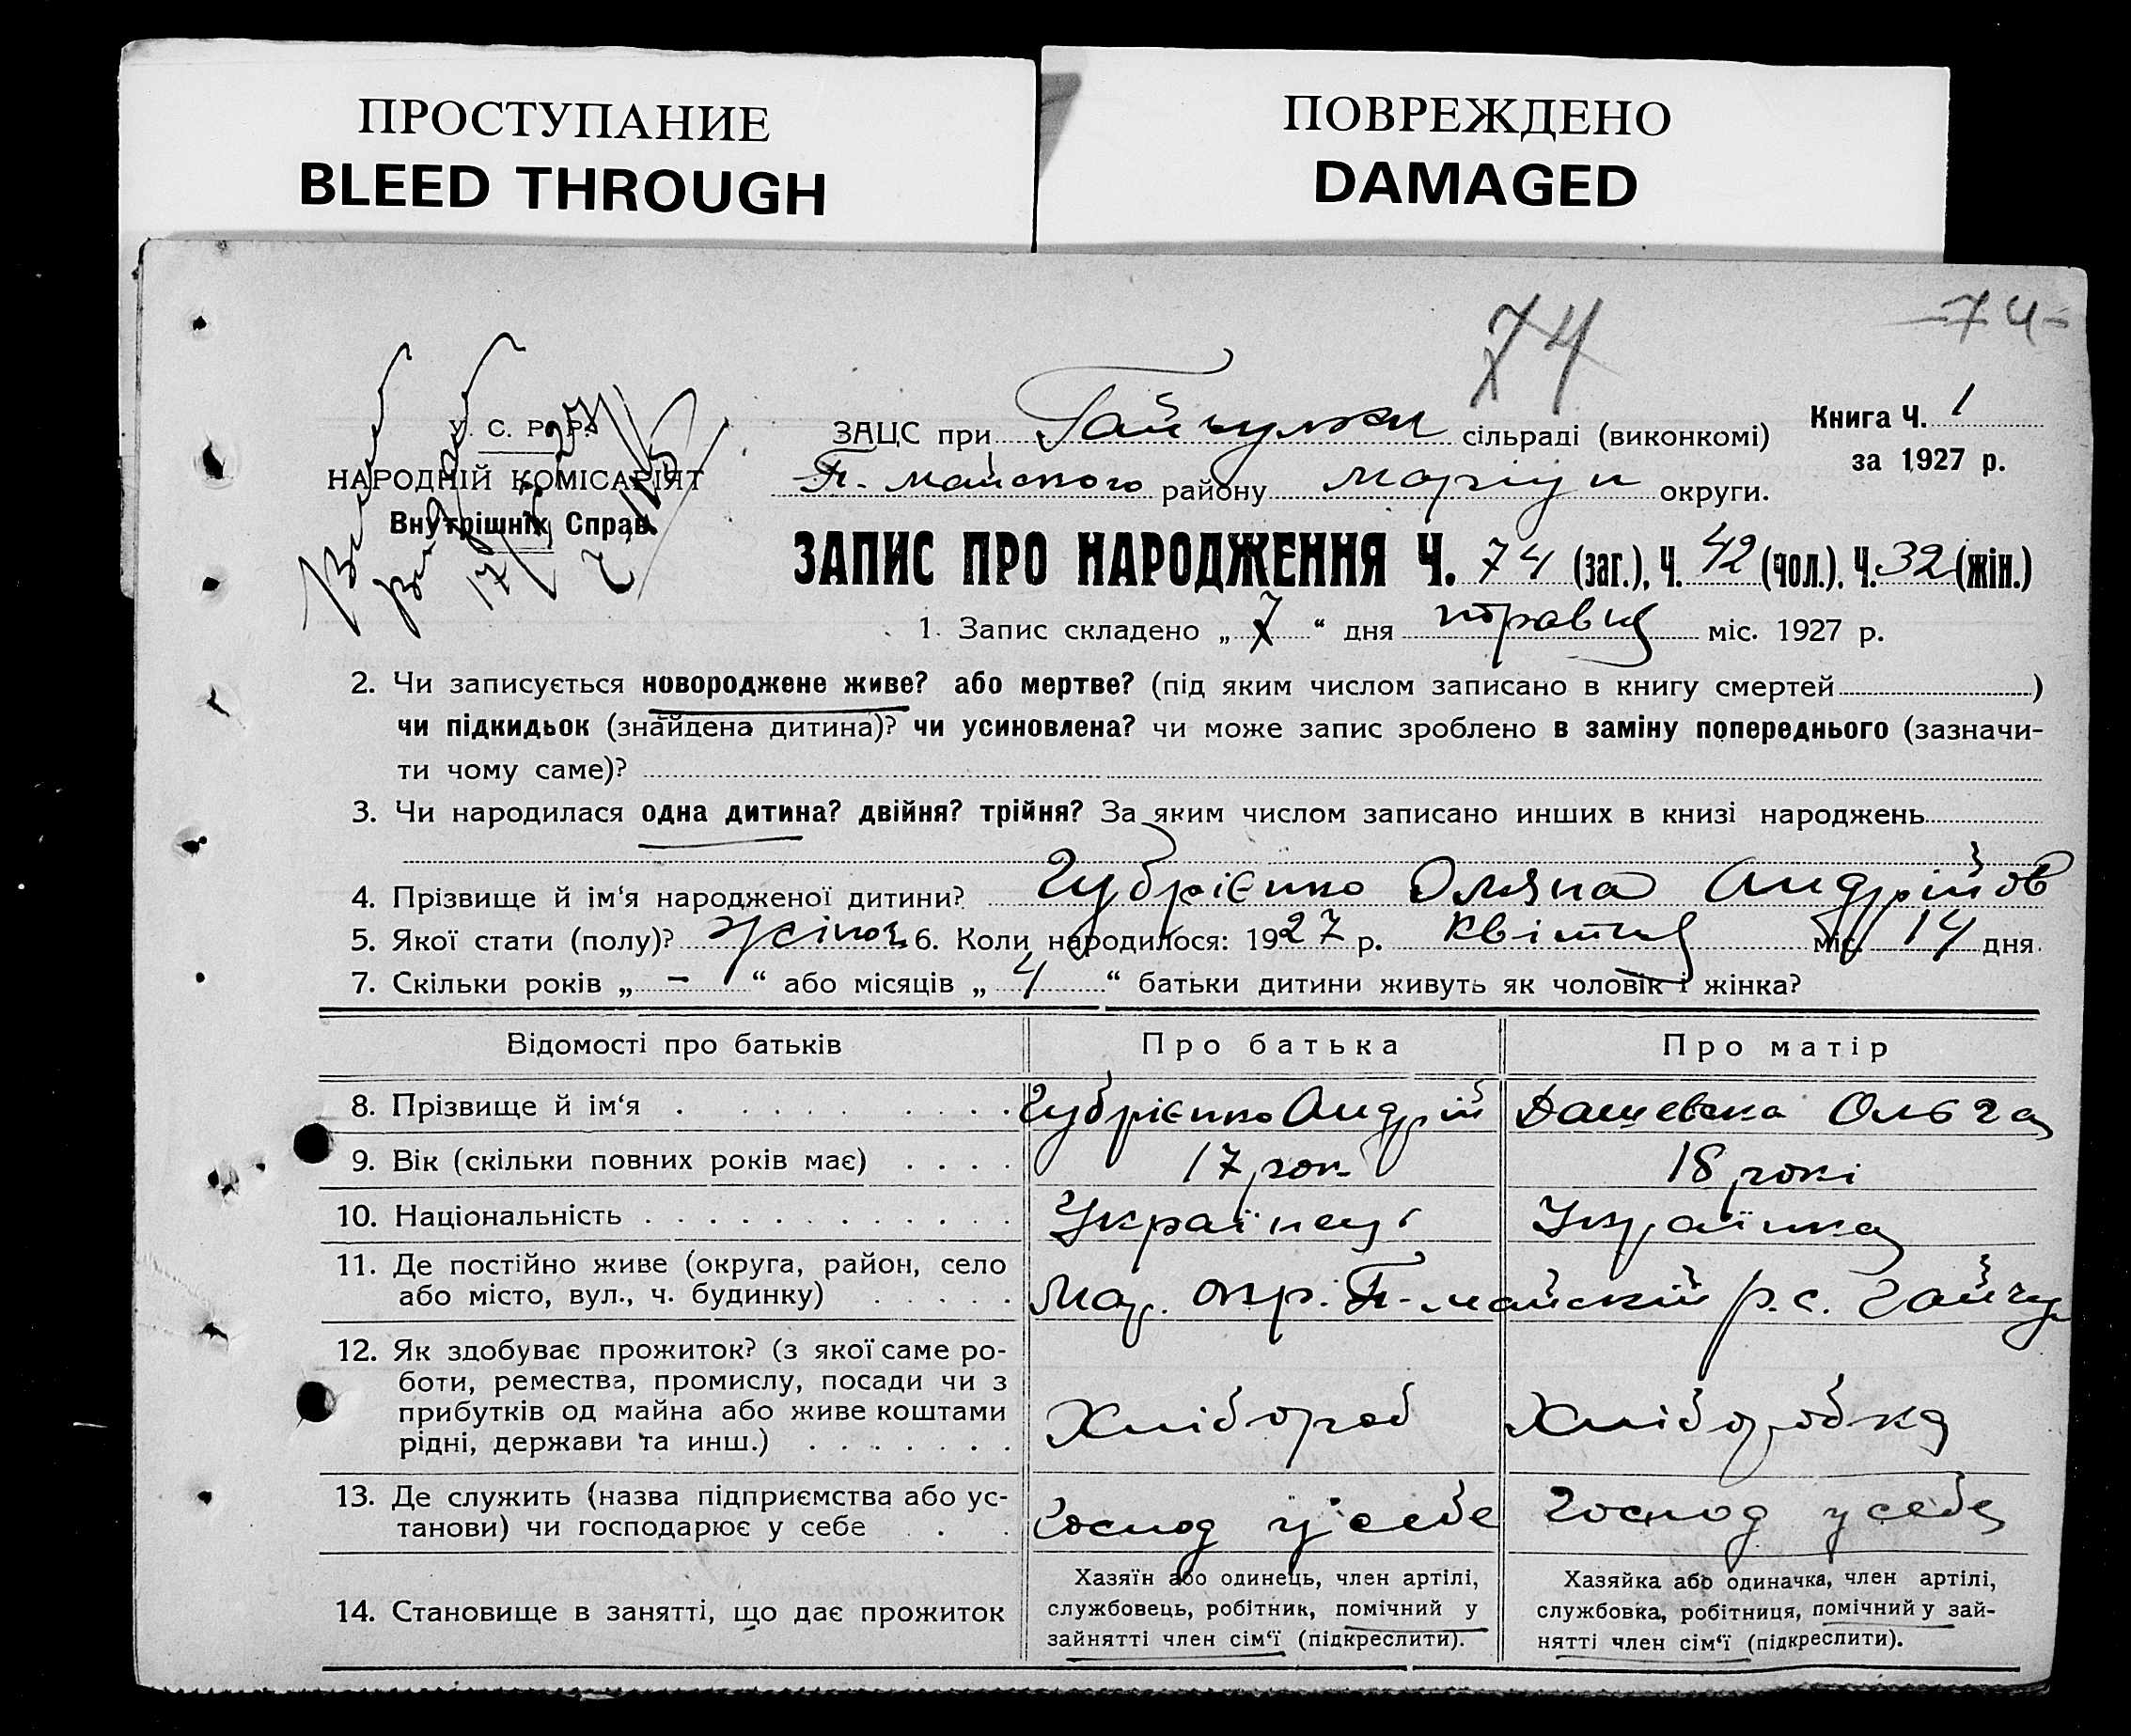 ПРОСТУПАНИЕ
BLEED THROUGH
ПОВРЕЖДЕНО
DAMAGED
74
-74-
У. С. Р. Р.
НАРОДНІЙ КОМІСАРІЯТ
Внутрішніх Справ.
ЗАЦС при Гайчулськ сільраді (виконкомі)
П. майського району Маріуп округи.
Книга Ч. 1
за 1927 р.
ЗАПИС ПРО НАРОДЖЕННЯ Ч. 74 (заг.), Ч. 42 (чол.), Ч. 32 (жін.)
1. Запис складено „ 7 “ дня травня міс. 1927 р.
2. Чи записується новороджене живе? або мертве? (під яким числом записано в книгу смертей )
чи підкидьок (знайдена дитина)? чи усиновлена? чи може запис зроблено в заміну попереднього (зазначи-
ти чому саме)?
3. Чи народилася одна дитина? двійня? трійня? За яким числом записано инших в книзі народжень
4. Прізвище й ім‘я народженої дитини? Губрієнко Оляна Андрійов
5. Якої стати (полу)? жіноч 6. Коли народилося: 1927 р. квітня міс. 14 дня.
7. Скільки років „ - “ або місяців „ 4 “ батьки дитини живуть як чоловік і жінка?
Відомості про батьків
Про батька
Про матір
8. Прізвище й ім‘я
Губрієнко Андрій
Дашевська Ольга
9. Вік (скільки повних років має)
17 рок
18 рокі
10. Національність
Українець
Українка
11. Де постійно живе (округа, район, село
або місто, вул., ч. будинку)
Мар. окр. П-майський р. с. Гайчу
12. Як здобуває прожиток? (з якої саме ро-
боти, ремества, промислу, посади чи з
прибутків од майна або живе коштами
рідні, держави та инш.)
Хлібороб
Хліборобка
13. Де служить (назва підприємства або ус-
танови) чи господарює у себе
Господ у себе
Господ у себе
14. Становище в занятті, що дає прожиток
Хазяїн або одинець, член артілі,
службовець, робітник, помічний у
зайнятті член сім‘ї (підкреслити).
Хазяйка або одиначка, член артілі,
службовка, робітниця, помічний у зай-
нятті член сім‘ї (підкреслити).